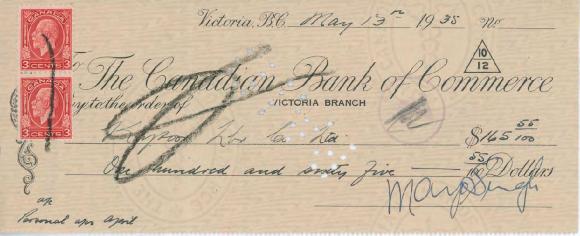 Victoria, B.C. May 13th 1935 No
10
12
CANADA
3 CENTS 3
To The Canadian Bank of Commerce
Pay to the order of VICTORIA BRANCH
CANADA
3 CENTS 3
Co Ltd $165 55/100
One hundred and sixty five 55/100 Dollars
Mayo Singh
a/c
Personal a/c April